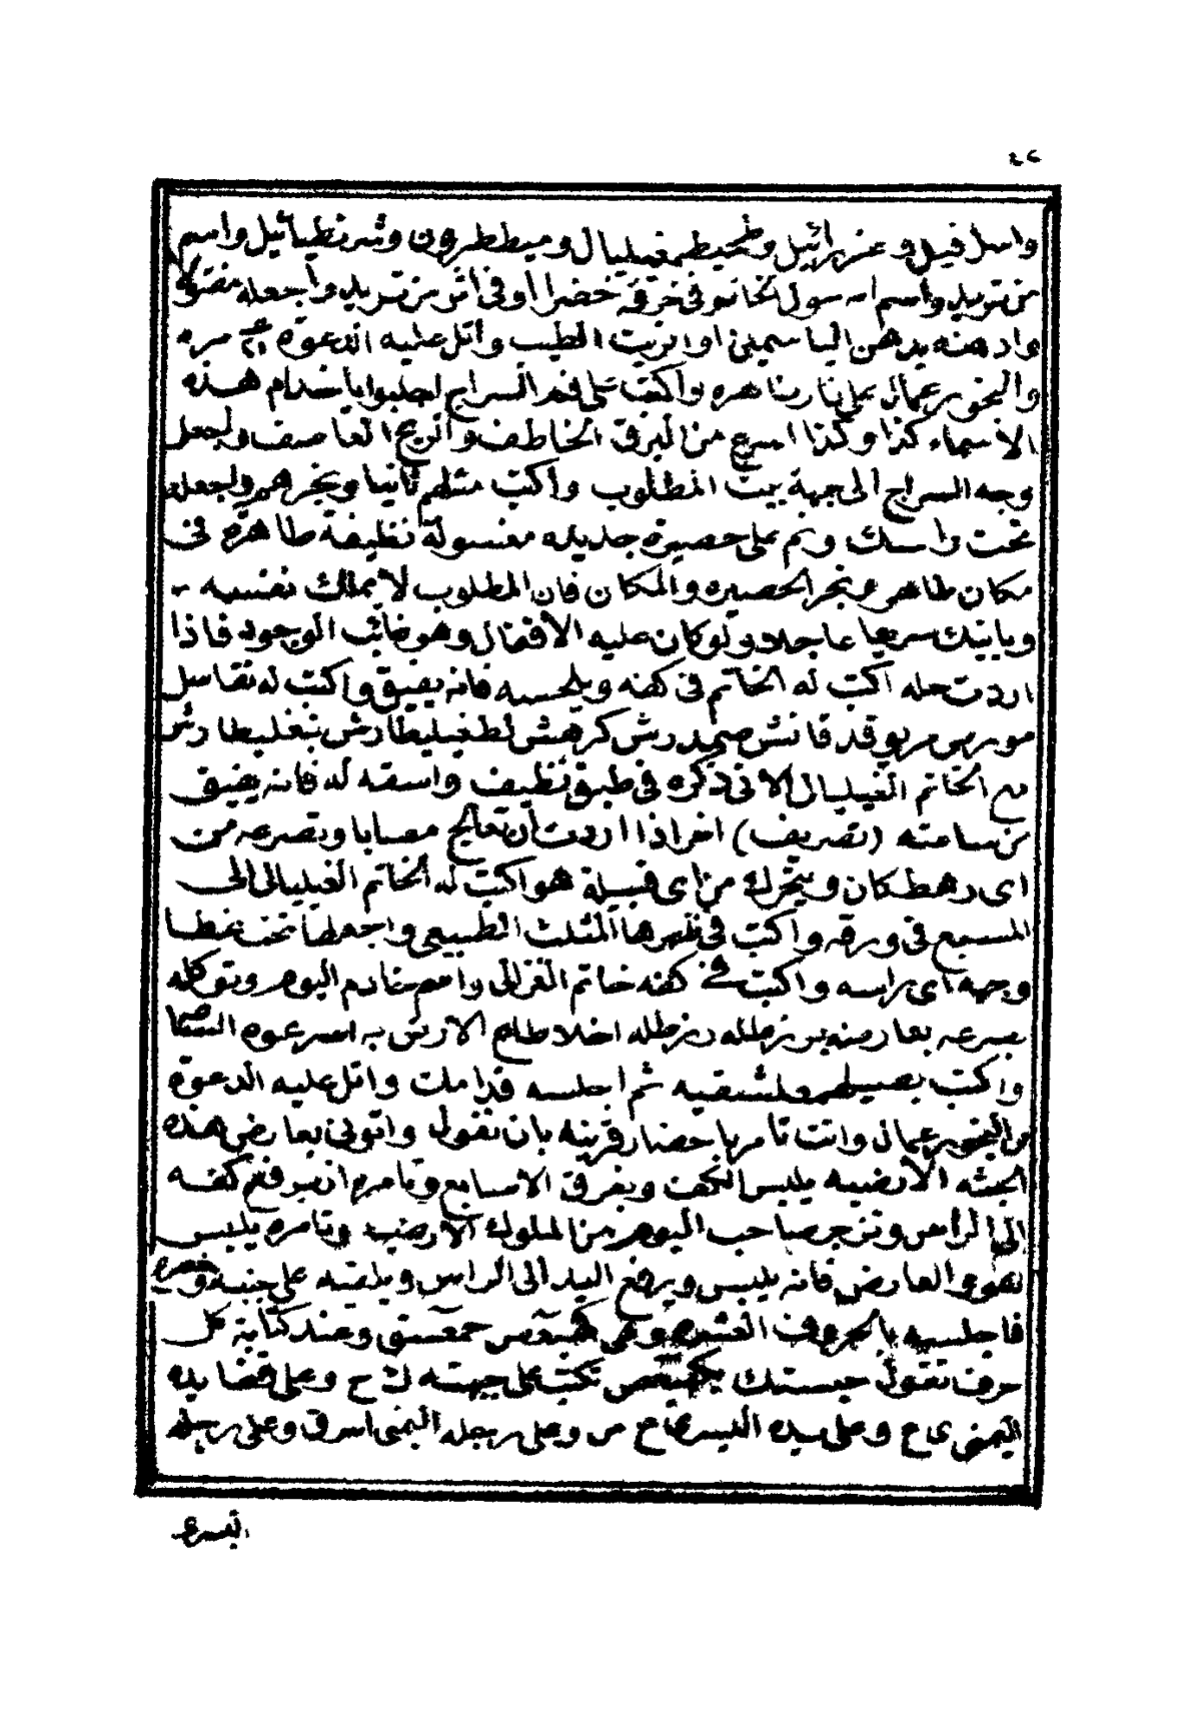 ٤٢
واسرافيل وعزرائيل وطحيطمغيليال وميططرون وشرنطيائيل واسم
من تريد واسم اسـ سول الخاتم فى خرقة خضرا او فى اثر من تريد واجعله مفتولا
وادهنه بدهن الياسمين او الزيت الطيب واتل عليه الدعوة ٢١ مره
والبخور عمال على نار ناهره واكتب على فم السراج اجلبوا ياخدام هذه
الاسماء كذا وكذا اسرع من البرق الخاطف والريح العاصف واجعل
وجه السراج الى جهة بيت المطلوب واكتب مثلهم ثانيا وبخرهم واجعله
تحت راسك ونم على حصيرة جديده مغسولة نظيفة طاهرة فى
مكان طاهر وبخر الحصيره والمكان فان المطلوب لا يملك نفسه
وياتيك سريعا عاجلا ولو كان عليه الاقفال وهو غائب الوجود فاذا
اردت حله اكتب له الخاتم فى كفه ويلحسه فانه يفيق واكتب له نقاسل
مورس مربو قد قانش صمدرش كرهش لطغيليطارش نبغليطارش
مع الخاتم الغيليال الاتى ذكره فى طبق نظيف واسقه له فانه يفيق
من ساعته (تصريف) اخر اذا اردت ان تعالج مصابا وبتصرعه من
اى رهط كان ويتحرك من اى قبيلة هو اكتب له الخاتم الغيليالى الى
المسبع فى ورقه واكتب فى ظهرها المثلث الطبيعى واجعلها تحت غطا
وجهه اى راسه واكتب فى كفه خاتم الغزالى واسم خادم اليوم وتوكله
بسرعه بعارضه بـ زطلله دزطله اخلا طلع الارض به اسرعوه الساعه
واكتب بصيطمعلشقيه ثم اجلسه قدامك واتل عليه الدعوة
والبخور عمال وانت تامر باحضار قرينه بان تقول واتونى بعارض هذه
الجثه الارضيه يلبس الكف ويفرق الاصابع وتامره ان يرفع كفه
الى الراس وتزجر صاحب اليوم من الملوك الارضيه وتامره يلبس
لهو والعارض فانه يلبس ويرفع اليد الى الراس ويلقيه على جنبه وخصره
فاحبسه بالحروف العشره وهى كهيعص حمعسق وعند كتابة كل
حرف تقول حبستك بكهيعص تكتب على جبهته ك ح وعلى قفا يده
اليمنى ى ع وعلى يده اليسرى ع ع س وعلى رجله اليمنى اس ق وعلى رجله
اليسرى